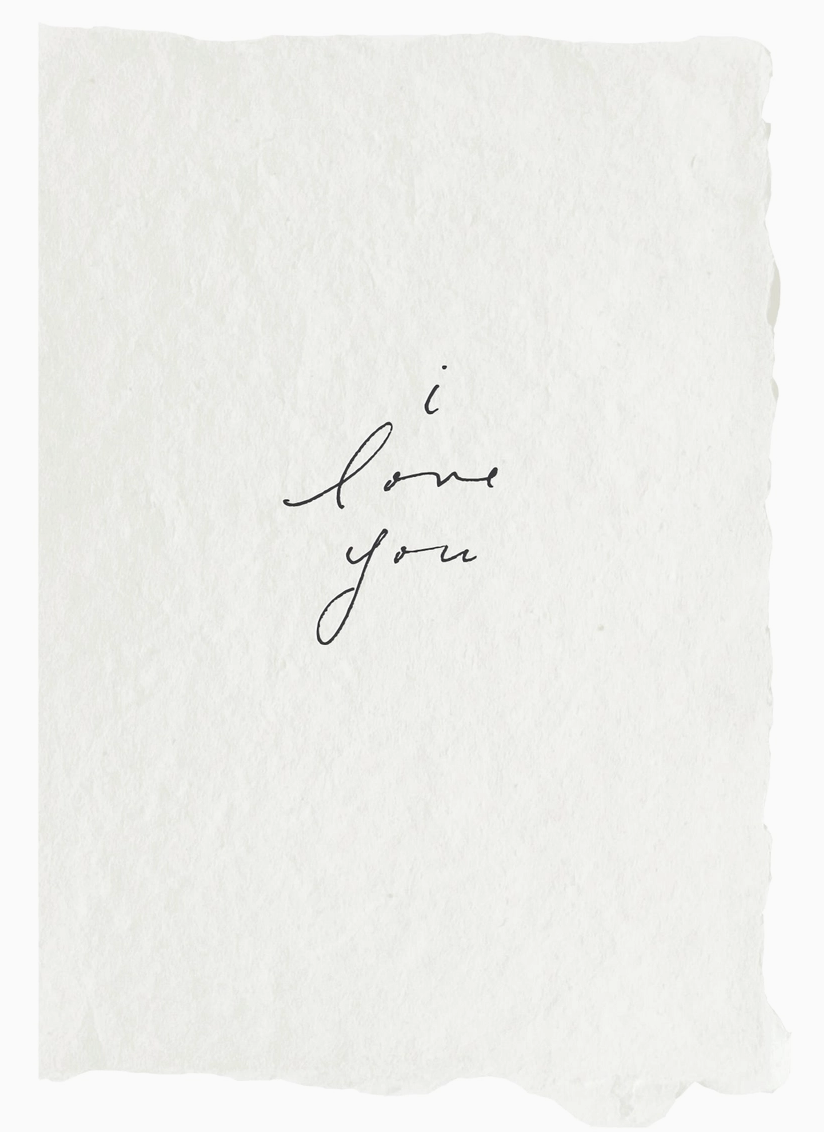 i
love
you